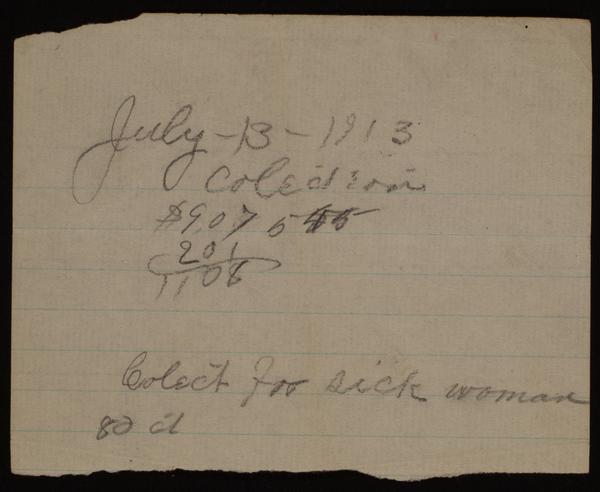 July - 13 - 1913
Colection
$9.07
201
1108
Colect for sick woman
80 ct